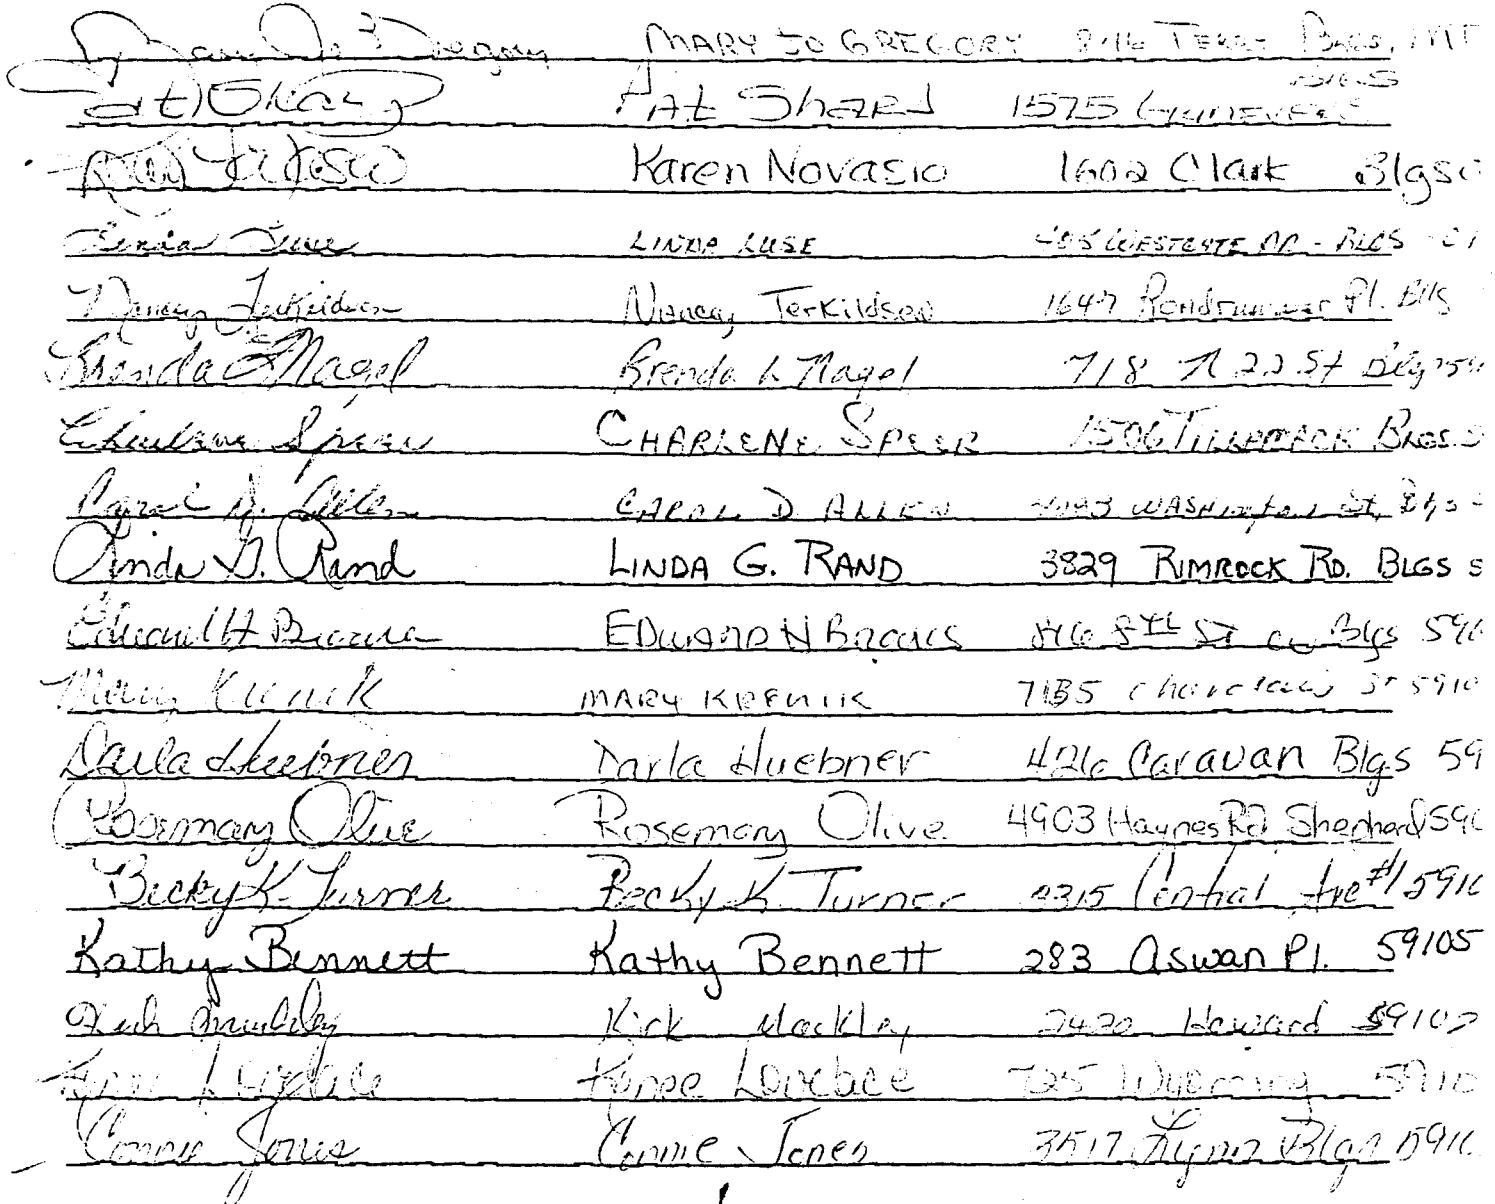 Mary Jo Gregory MARY JO GREGORY 846 TERRY BLGS, MT
Pat Shard Pat Shard 1575 Blgs
Karen Novasio Karen Novasio 1602 Clark Blgs
Linda Luse LINDA LUSE 405 WESTGATE DR - BLGS
Nancy Terkildsen Nancy Terkildsen 1647 Roadrunner Pl. Blgs
Brenda L Nagel Brenda L Nagel 718 N 22 St Blgs 59
Charlene Speer CHARLENE SPEER 1506 TILLAMOOK BLGS. 5
Carol D. Allen CAROL D. ALLEN WASHington St, Blgs 5
Linda G. Rand LINDA G. RAND 3829 RIMROCK RD. BLGS 5
Edward H 8th St W Blgs 591
Mary Krenik MARY KRENIK 7135 5910
Darla Huebner Darla Huebner 426 Caravan Blgs 59
Rosemary Olive Rosemary Olive 4903 Haynes Rd Shepherd 590
Becky K. Turner Becky K. Turner 3315 Central Ave #1 5910
Kathy Bennett Kathy Bennett 283 Aswan Pl. 59105
Kirk Mackley 2420 Howard 59102
Renee Lovelace Renee Lovelace 725 Wyoming 5910
Connie Jones Connie Jones 3517 Lynn Blgs 5910